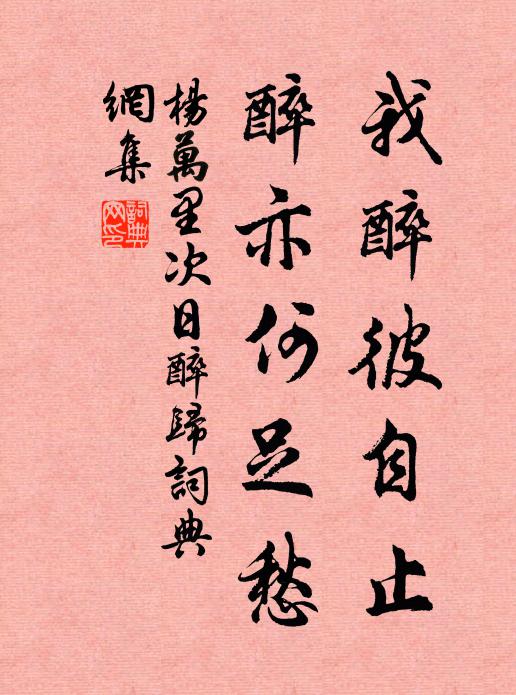 我醉彼自止
醉亦何足愁
楊萬里次日醉歸詞典
網集
詞典網印